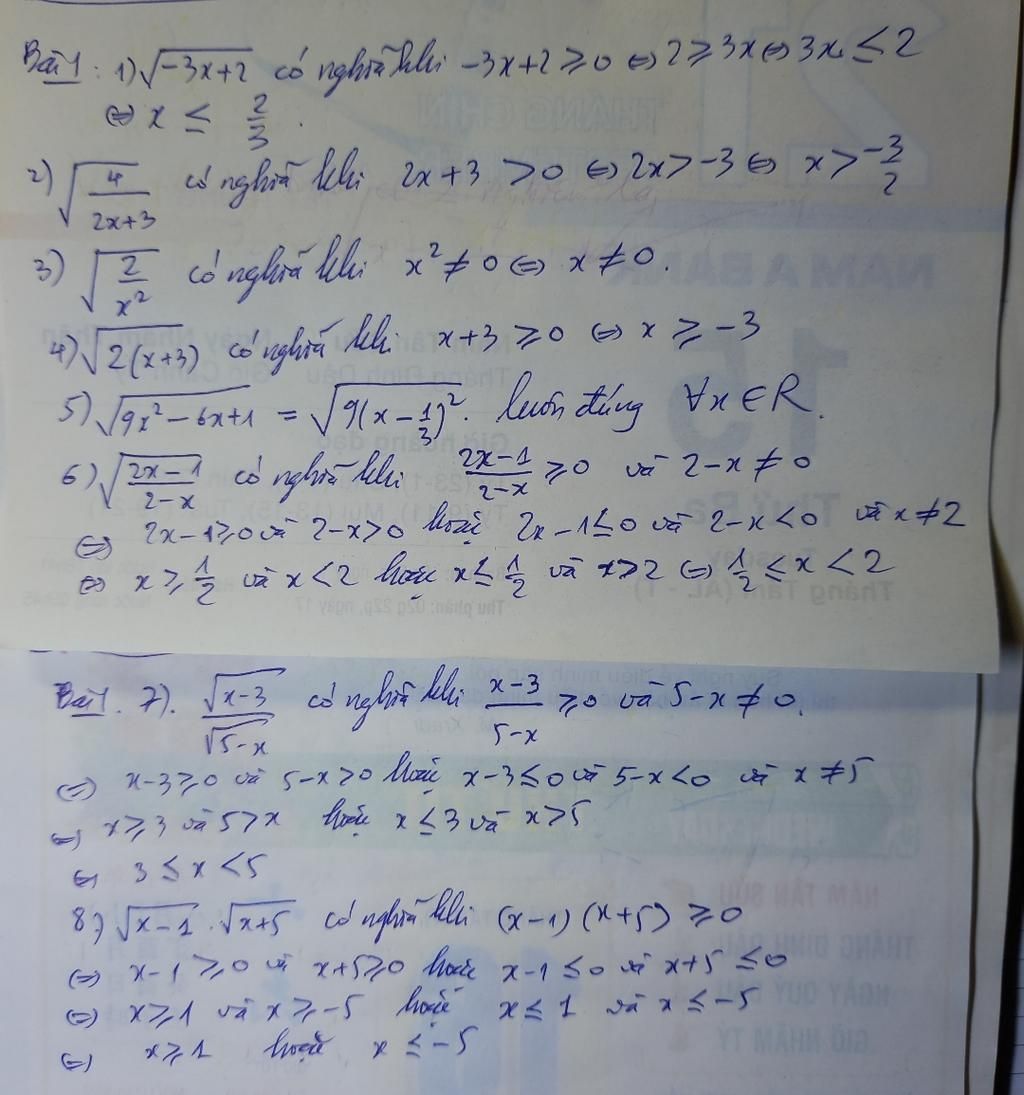 Bài 1: 1) √(-3x+2) có nghĩa khi -3x+2 ≥ 0 ⇔ 2 ≥ 3x ⇔ 3x ≤ 2
⇔ x ≤ 2/3.
2) √(4/(2x+3)) có nghĩa khi 2x+3 > 0 ⇔ 2x > -3 ⇔ x > -3/2
3) √(2/x²) có nghĩa khi x² ≠ 0 ⇔ x ≠ 0.
4) √(2(x+3)) có nghĩa khi x+3 ≥ 0 ⇔ x ≥ -3
5) √(9x²-6x+1) = √(9(x-1/3)²). luôn đúng ∀x ∈ R.
6) √((2x-1)/(2-x)) có nghĩa khi (2x-1)/(2-x) ≥ 0 và 2-x ≠ 0
⇔ 2x-1 ≥ 0 và 2-x > 0 hoặc 2x-1 ≤ 0 và 2-x < 0 và x ≠ 2
⇔ x ≥ 1/2 và x < 2 hoặc x ≤ 1/2 và x > 2 ⇔ 1/2 ≤ x < 2
Bài 1. 7). √(x-3)/√(5-x) có nghĩa khi (x-3)/(5-x) ≥ 0 và 5-x ≠ 0.
⇔ x-3 ≥ 0 và 5-x > 0 hoặc x-3 ≤ 0 và 5-x < 0 và x ≠ 5
⇔ x ≥ 3 và 5 > x hoặc x ≤ 3 và x > 5
⇔ 3 ≤ x < 5
8) √(x-1) . √(x+5) có nghĩa khi (x-1)(x+5) ≥ 0
⇔ x-1 ≥ 0 và x+5 ≥ 0 hoặc x-1 ≤ 0 và x+5 ≤ 0
⇔ x ≥ 1 và x ≥ -5 hoặc x ≤ 1 và x ≤ -5
⇔ x ≥ 1 hoặc x ≤ -5